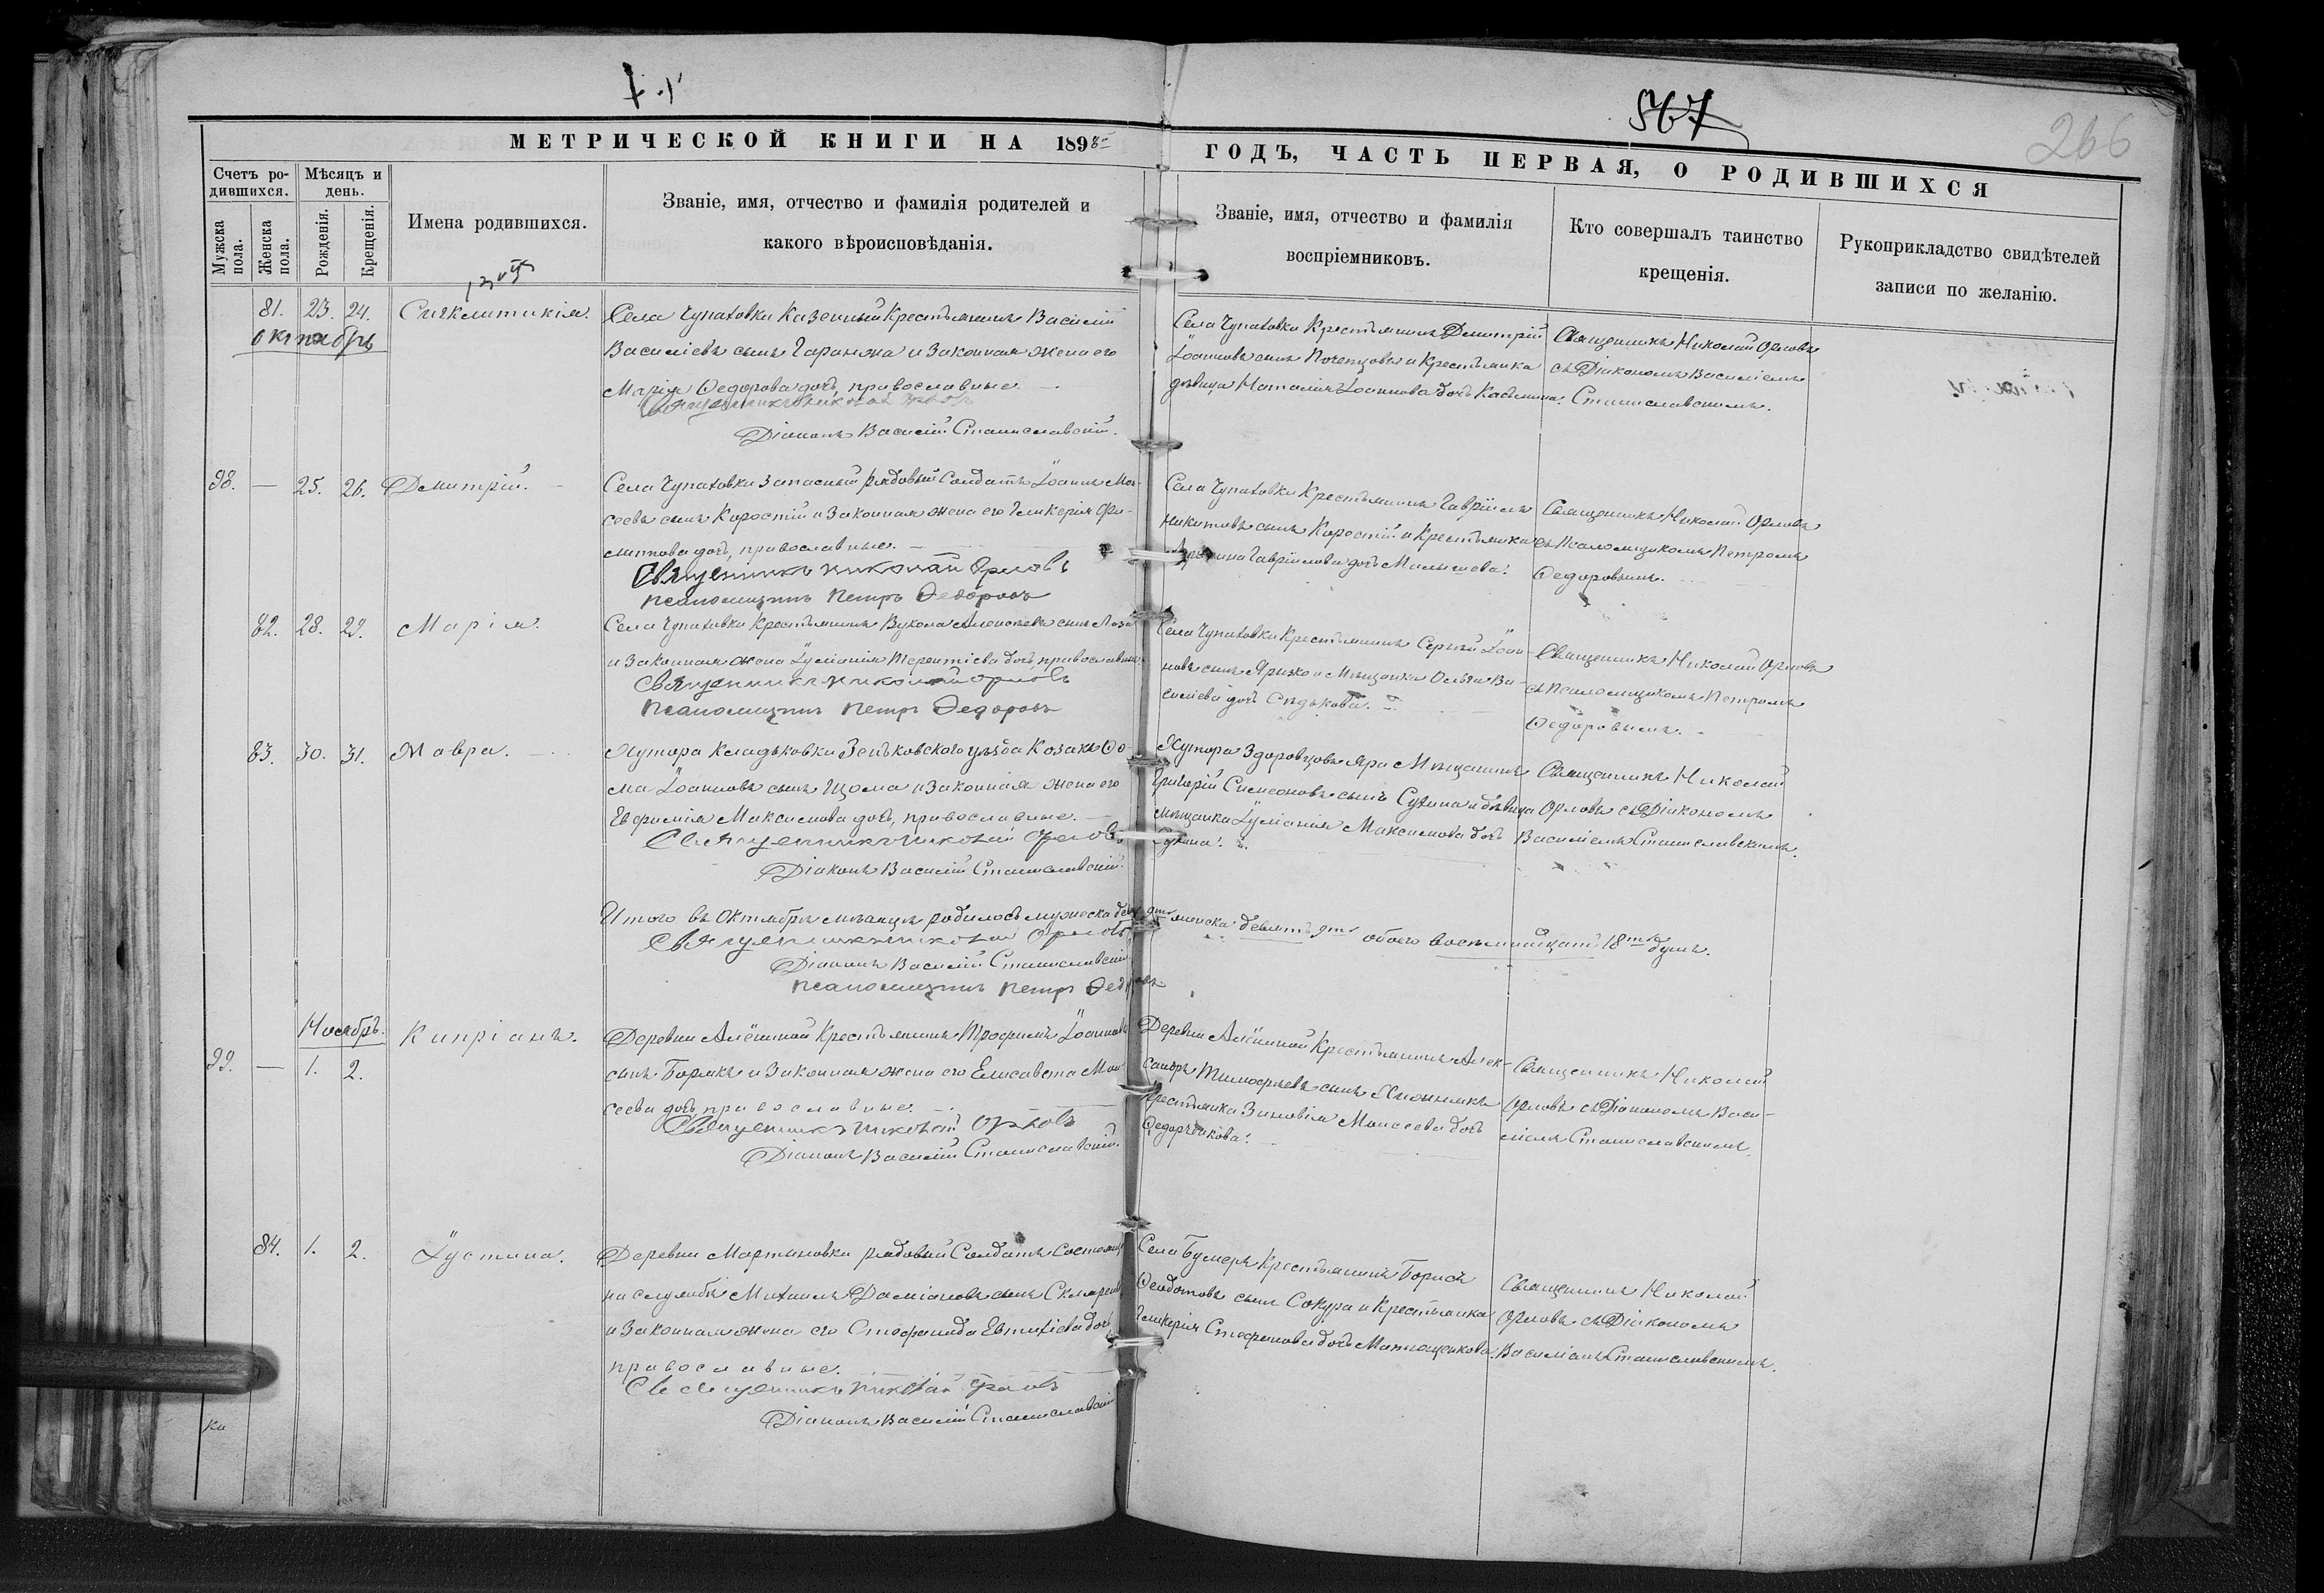 567
266
МЕТРИЧЕСКОЙ КНИГИ НА 1898
ГОДЪ, ЧАСТЬ ПЕРВАЯ, О РОДИВШИХСЯ
Счетъ ро-
дившихся.
Мѣсяцъ и
день.
Мужска
пола.
Женска
пола.
Рожденія.
Крещенія.
Имена родившихся.
Званіе, имя, отчество и фамилія родителей и
какого вѣроисповѣданія.
Званіе, имя, отчество и фамилія
воспріемниковъ.
Кто совершалъ таинство
крещенія.
Рукоприкладство свидѣтелей
записи по желанію.
81. 23. 24. Сигклитикія.
октябрь
Села Чупаховки Казенный Крестьянинъ Василій
Василіевъ сынъ Гаранжа и законная жена его
Марія Ѳедорова дочь, православные.
Священникъ Николай Орловъ
Діаконъ Василій Станиславскій.
Села Чупаховки Крестьянинъ Дмитрій
Іоанновъ сынъ и Крестьянка
дѣвица Наталія Іоаннова дочь
Священникъ Николай Орловъ
съ Діакономъ Василіемъ
Станиславскимъ.
98. — 25. 26. Дмитрій.
Села Чупаховки запасный рядовый Солдатъ Іоаннъ Мои-
сеевъ сынъ Коростій и законная жена его Гликерія Фи-
липпова дочь, православные.
Священникъ Николай Орловъ
Псаломщикъ Петръ Ѳедоровъ
Села Чупаховки Крестьянинъ Гавріилъ
Никитовъ сынъ Коростій и Крестьянка
Гавріилова дочь Малышева.
Священникъ Николай Орловъ
съ Псаломщикомъ Петромъ
Ѳедоровымъ.
82. 28. 29. Марія.
Села Чупаховки Крестьянинъ Вукола сынъ
и законная жена Іуліанія Терентіева дочь, православные
Священникъ Николай Орловъ
Псаломщикъ Петръ Ѳедоровъ
Села Чупаховки Крестьянинъ Сергій Іоан-
новъ сынъ и Мѣщанка Ва-
силіева дочь Сѣдькова.
Священникъ Николай Орловъ
съ Псаломщикомъ Петромъ
Ѳедоровымъ.
83. 30. 31. Мавра.
Хутора Кладьковки Зеньковскаго уѣзда Козакъ Ѳо-
ма Іоанновъ сынъ и законная жена его
Евфимія Максимова дочь, православные.
Священникъ Николай Орловъ
Діаконъ Василій Станиславскій.
Хутора Здоровцова Яра Мѣщанинъ
Григорій Симеоновъ сынъ и дѣвица
мѣщанка Іуліанія Максимова дочь
Священникъ Николай
Орловъ съ Діакономъ
Василіемъ Станиславскимъ.
Итого въ Октябрѣ мѣсяцѣ родилось мужеска девять 9ть женска девять 9ть обоего восемнадцать 18ть душъ.
Священникъ Николай Орловъ
Діаконъ Василій Станиславскій
Псаломщикъ Петръ Ѳедоровъ
Ноябрь.
99. — 1. 2. Кипріанъ.
Деревни Алёшиной Крестьянинъ Трофимъ Іоанновъ
сынъ Борякъ и законная жена его Елисавета Мои-
сеева дочь, православные.
Священникъ Николай Орловъ
Діаконъ Василій Станиславскій.
Деревни Алёшиной Крестьянинъ Алек-
сандръ Тимофѣевъ сынъ Хижнякъ
Крестьянка Зиновія Моисеева дочь
Ѳедорченкова.
Священникъ Николай
Орловъ съ Діакономъ Васи-
ліемъ Станиславскимъ.
84. 1. 2. Іустина.
Деревни Мартыновки рядовый Солдатъ состоящій
на службѣ Михаилъ Даміановъ сынъ
и законная жена его Стефанида Евтихіева дочь
православные.
Священникъ Николай Орловъ
Діаконъ Василій Станиславскій
Села Бумеря Крестьянинъ Борисъ
Ѳеодотовъ сынъ Сокура и Крестьянка
Гликерія Стефанова дочь
Священникъ Николай
Орловъ съ Діакономъ
Василіемъ Станиславскимъ.